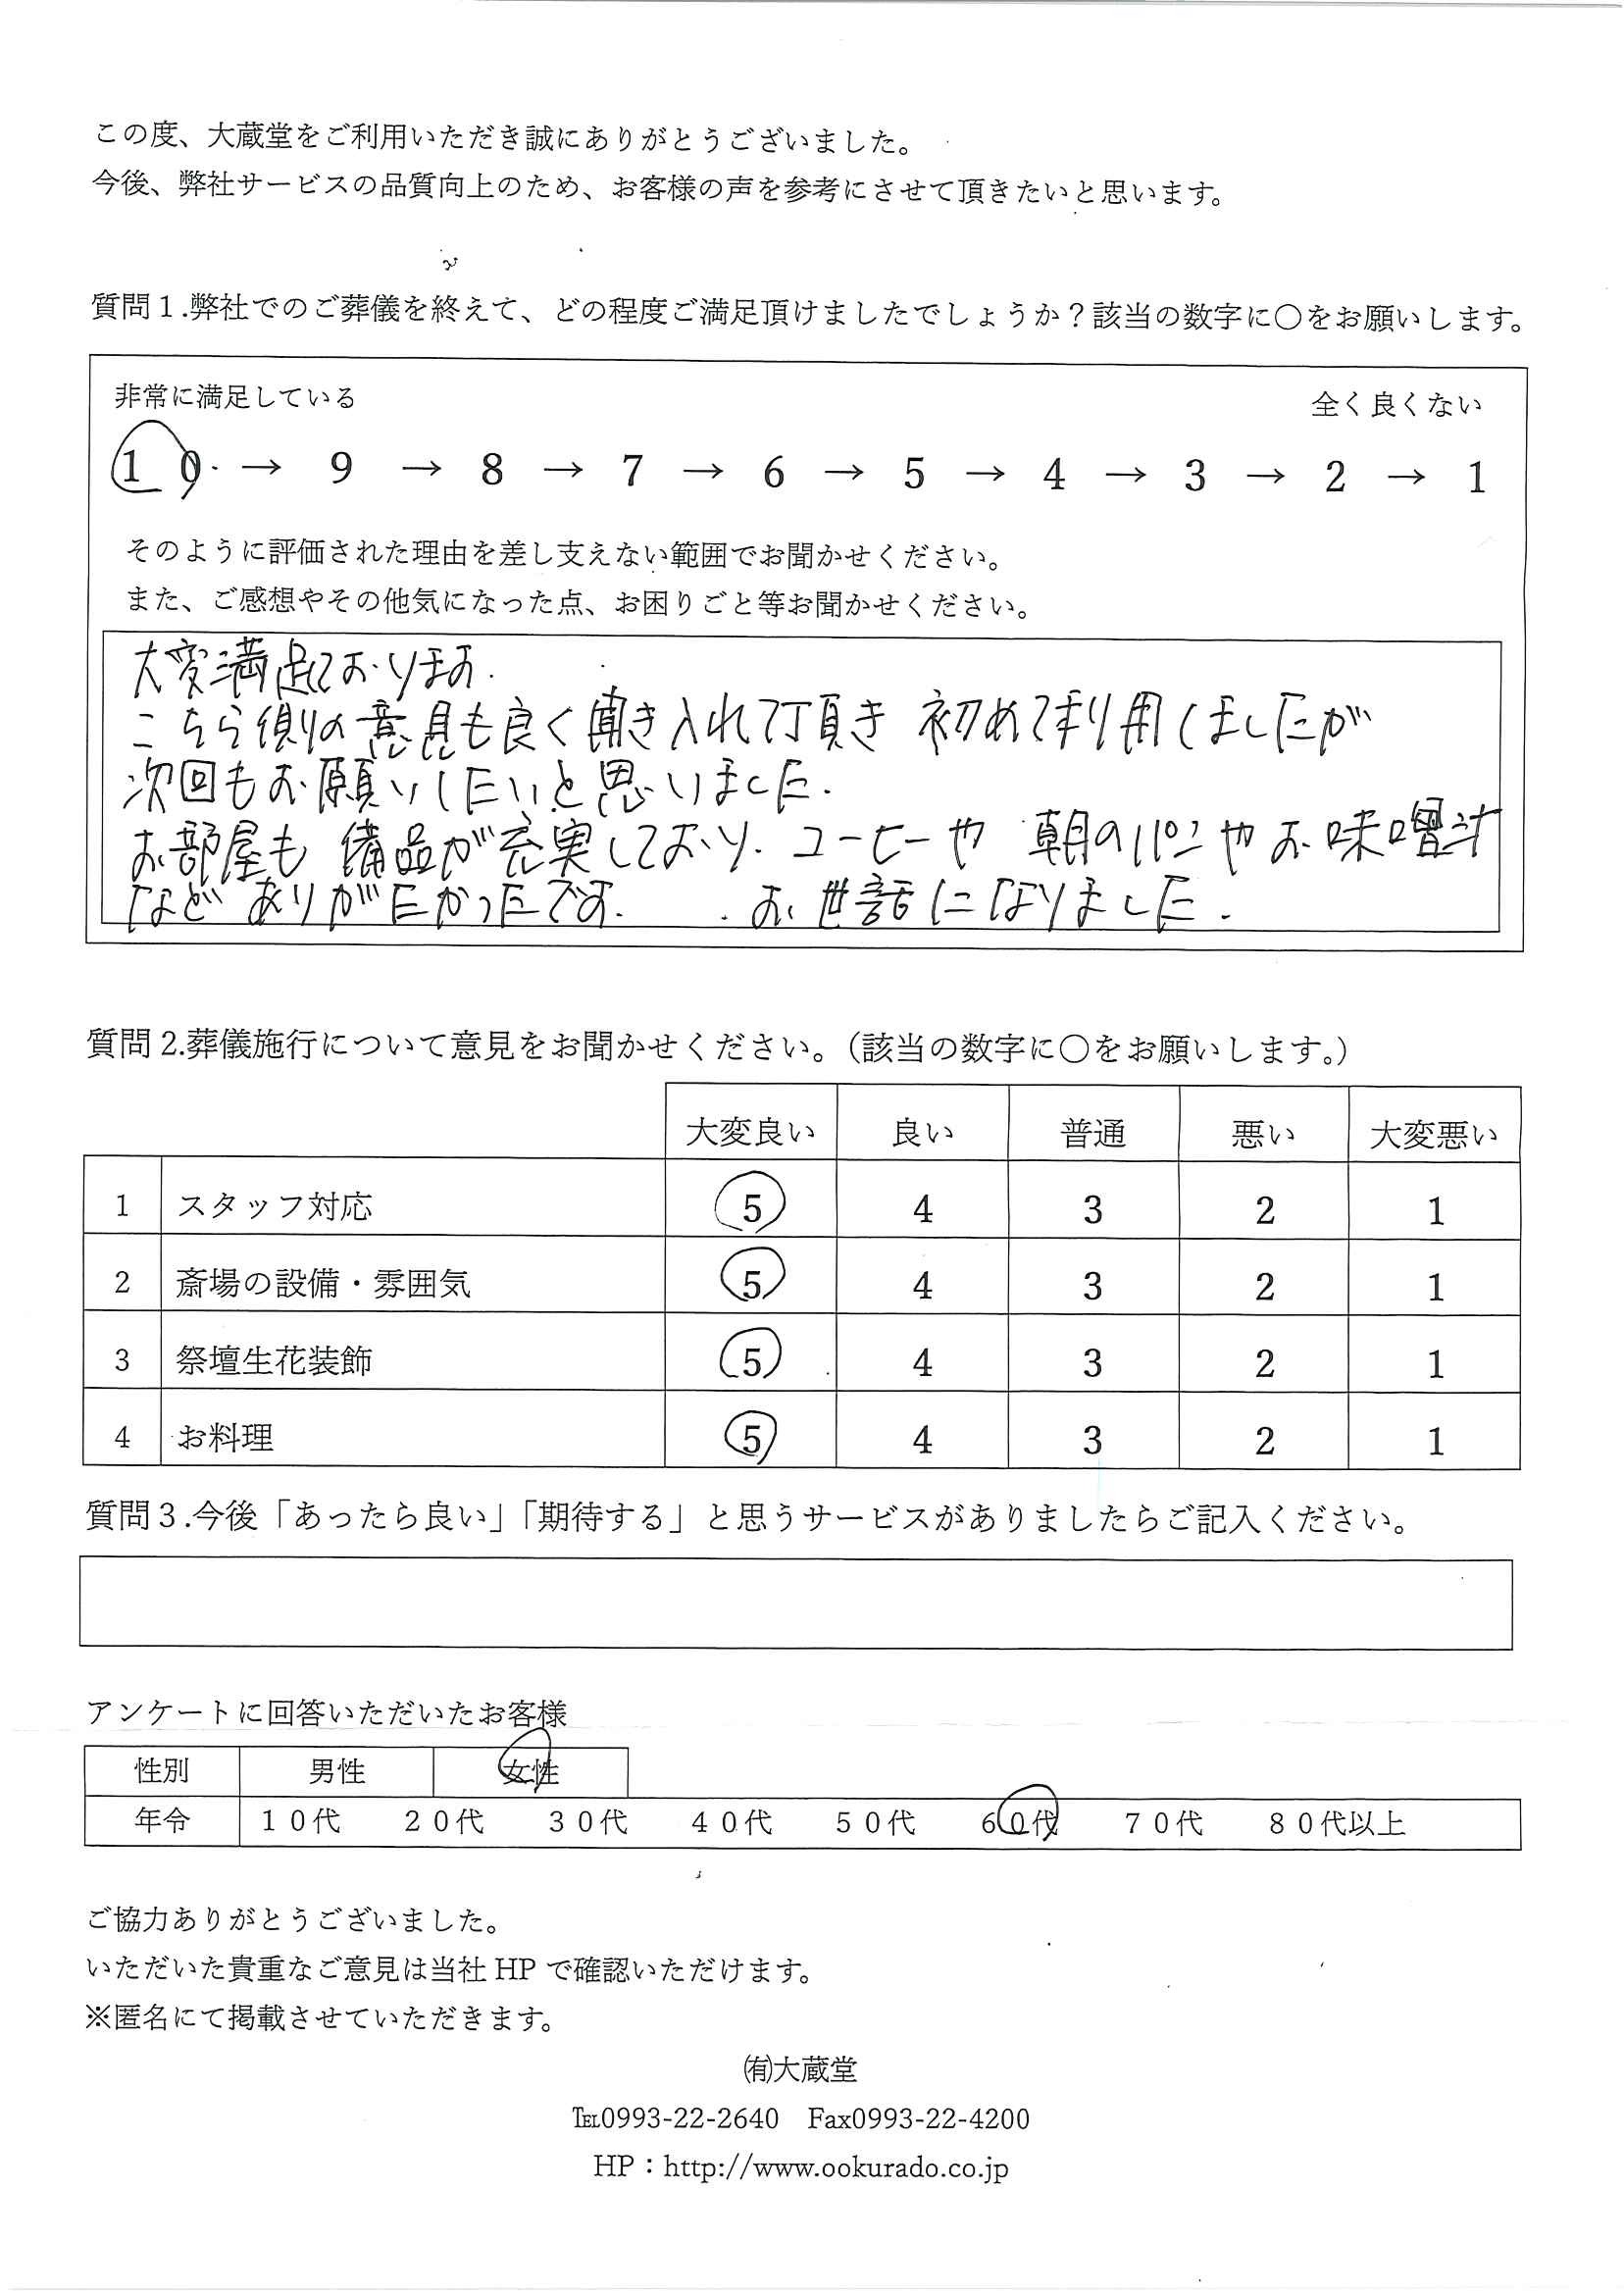 この度、大蔵堂をご利用いただき誠にありがとうございました。
今後、弊社サービスの品質向上のため、お客様の声を参考にさせて頂きたいと思います。
質問１.弊社でのご葬儀を終えて、どの程度ご満足頂けましたでしょうか？該当の数字に○をお願いします。
非常に満足している 全く良くない
１０ → 9 → 8 → 7 → 6 → 5 → 4 → 3 → 2 → 1
そのように評価された理由を差し支えない範囲でお聞かせください。
また、ご感想やその他気になった点、お困りごと等お聞かせください。
大変満足しております.
こちら側の意見も良く聞き入れて頂き 初めて利用しましたが
次回もお願いしたいと思いました.
お部屋も 備品が充実しており、コーヒーや 朝のパンやお味噌汁
などありがたかったです. お世話になりました.
質問 2.葬儀施行について意見をお聞かせください。（該当の数字に○をお願いします。）
大変良い 良い 普通 悪い 大変悪い
1 スタッフ対応 5 4 3 2 1
2 斎場の設備・雰囲気 5 4 3 2 1
3 祭壇生花装飾 5 4 3 2 1
4 お料理 5 4 3 2 1
質問３.今後「あったら良い」「期待する」と思うサービスがありましたらご記入ください。
アンケートに回答いただいたお客様
性別 男性 女性
年令 １０代 ２０代 ３０代 ４０代 ５０代 ６０代 ７０代 ８０代以上
ご協力ありがとうございました。
いただいた貴重なご意見は当社 HP で確認いただけます。
※匿名にて掲載させていただきます。
㈲大蔵堂
℡0993-22-2640 Fax0993-22-4200
HP：http://www.ookurado.co.jp